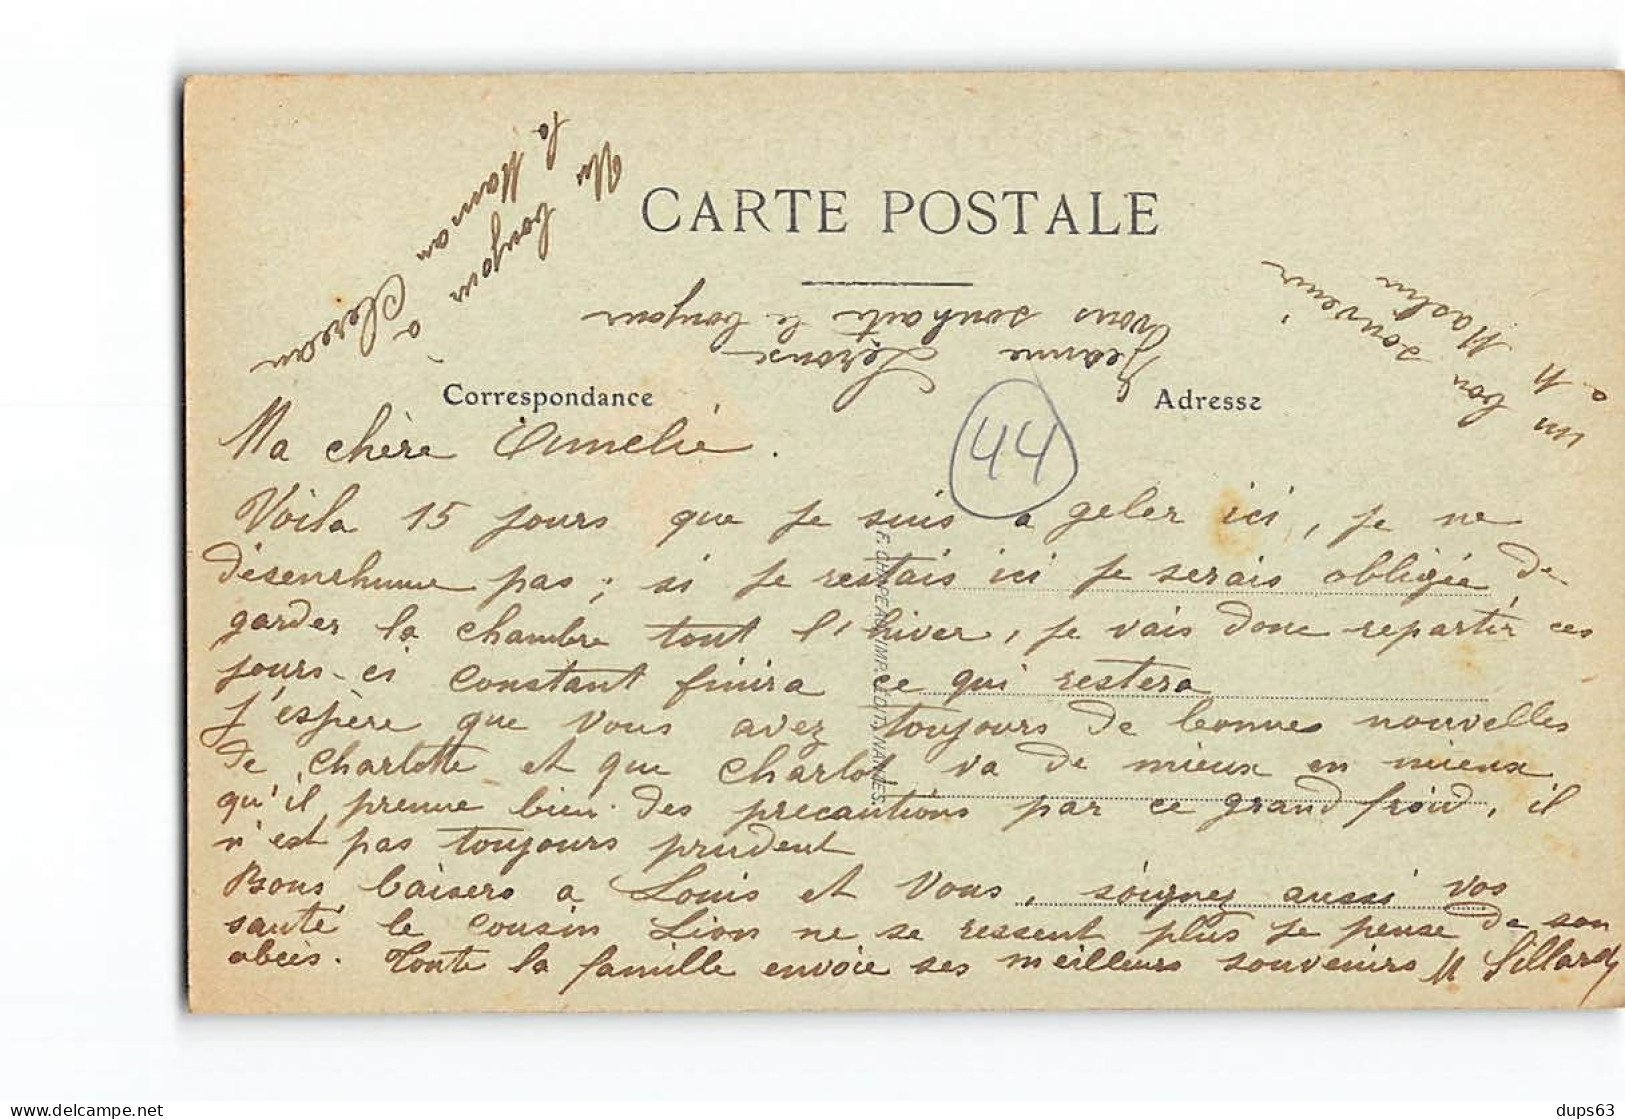 CARTE POSTALE
Un bonjour à
la Maman Clereau
Jeanne Leroux
vous souhaite le bonjour
un bon souvenir
à M Maslin
Correspondance
Adresse
44
Ma chère Amelie.
Voila 15 jours que je suis a geler ici, je ne
désenrhume pas; si je restais ici je serais obligée de
garder la chambre tout l'hiver, je vais donc repartir ces
jours-ci Constant finira ce qui restera
J'espère que vous avez toujours de bonnes nouvelles
de Charlotte et que Charlot va de mieux en mieux
qu'il prenne bien des precautions par ce grand froid, il
n'est pas toujours prudent
Bons baisers a Louis et Vous, soignez aussi vos
santé le cousin Lion ne se ressent plus je pense de son
abcès. Toute la famille envoie ses meilleurs souvenirs M Sillard
F. CHAPEAU, IMP. EDIT., NANTES.
dups63